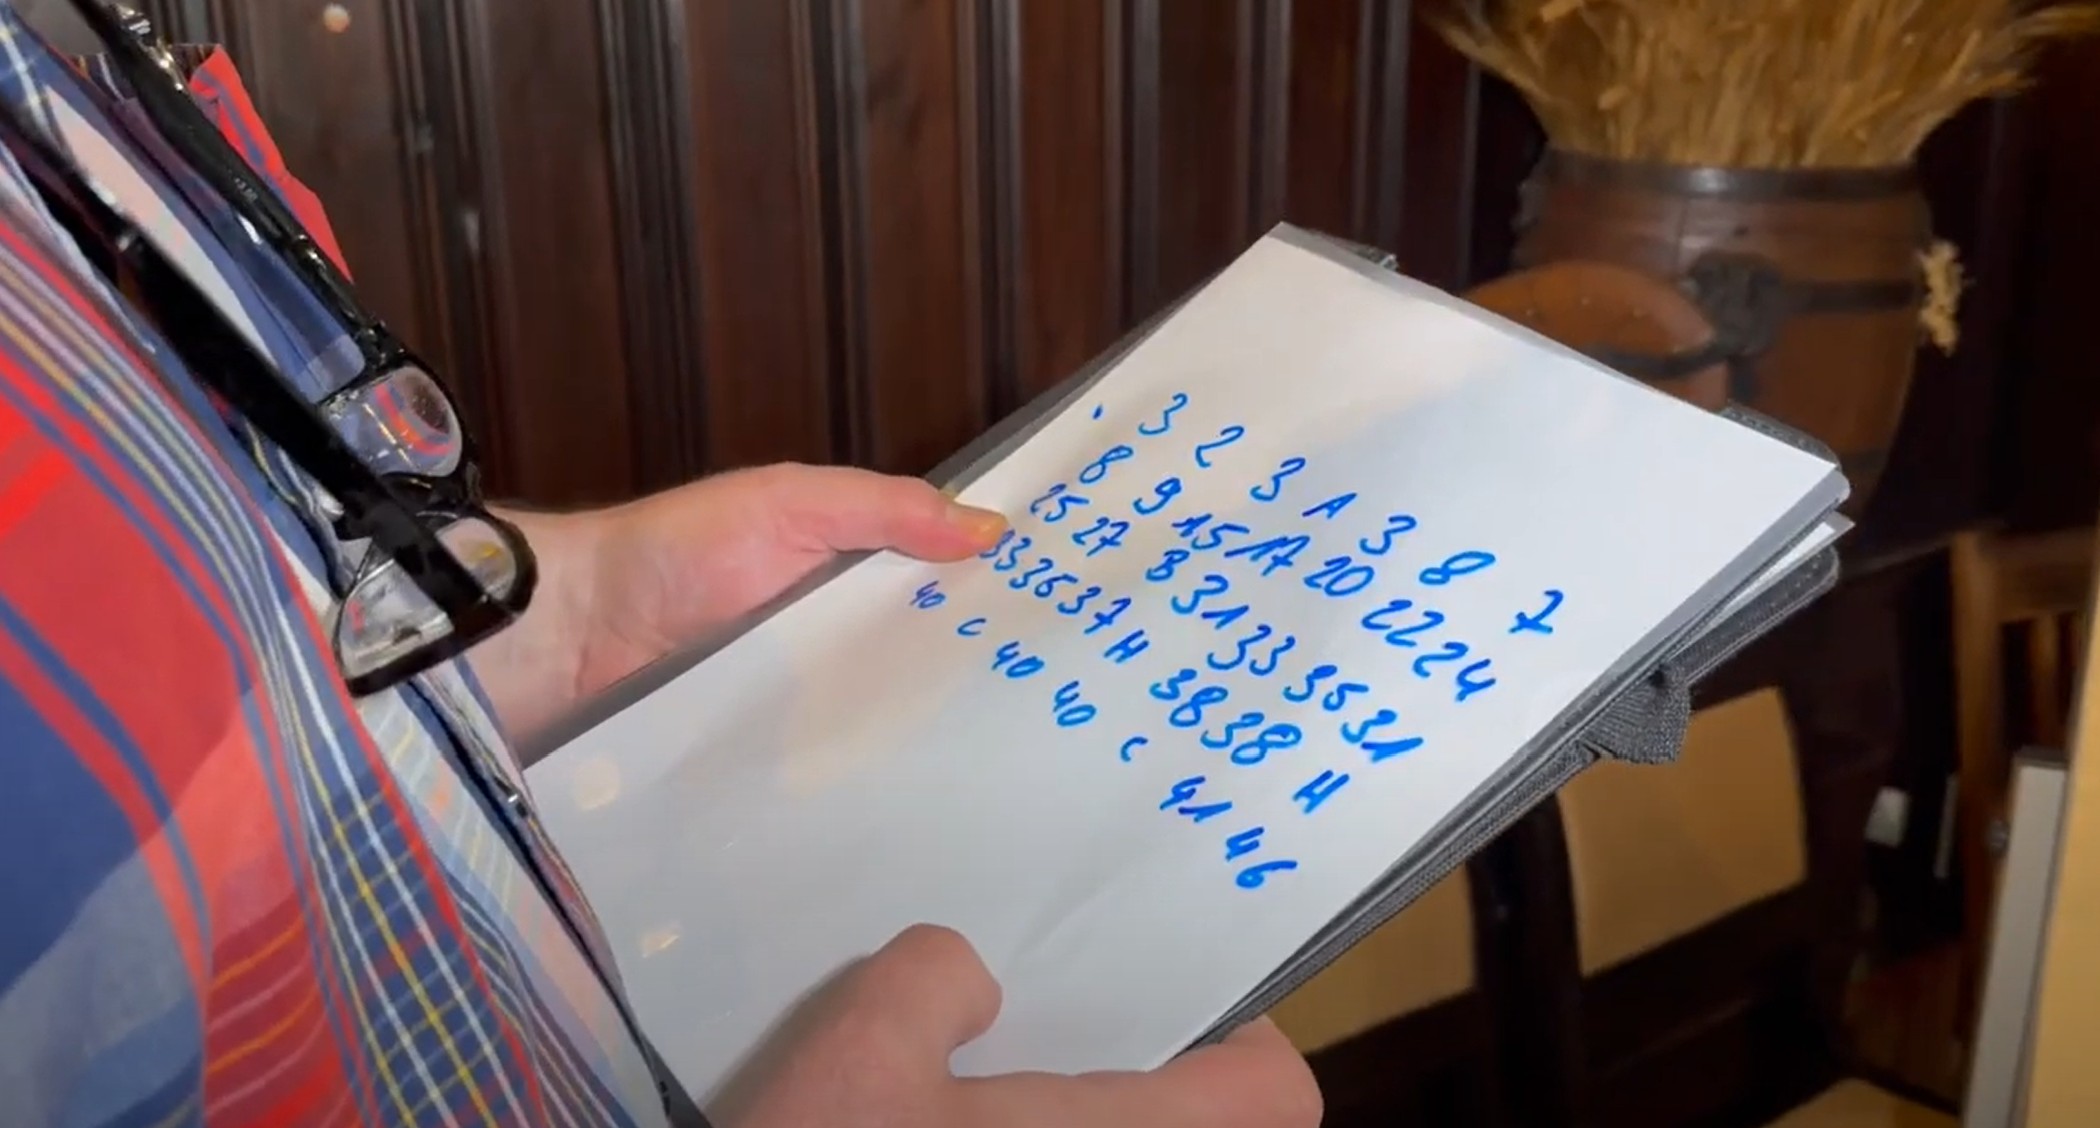 . 3 2 3 1 3 8 7
8 9 15 17 20 22 24
25 27 B 31 33 35 31
33 35 37 H 38 38 H
40 c 40 40 c 41 46